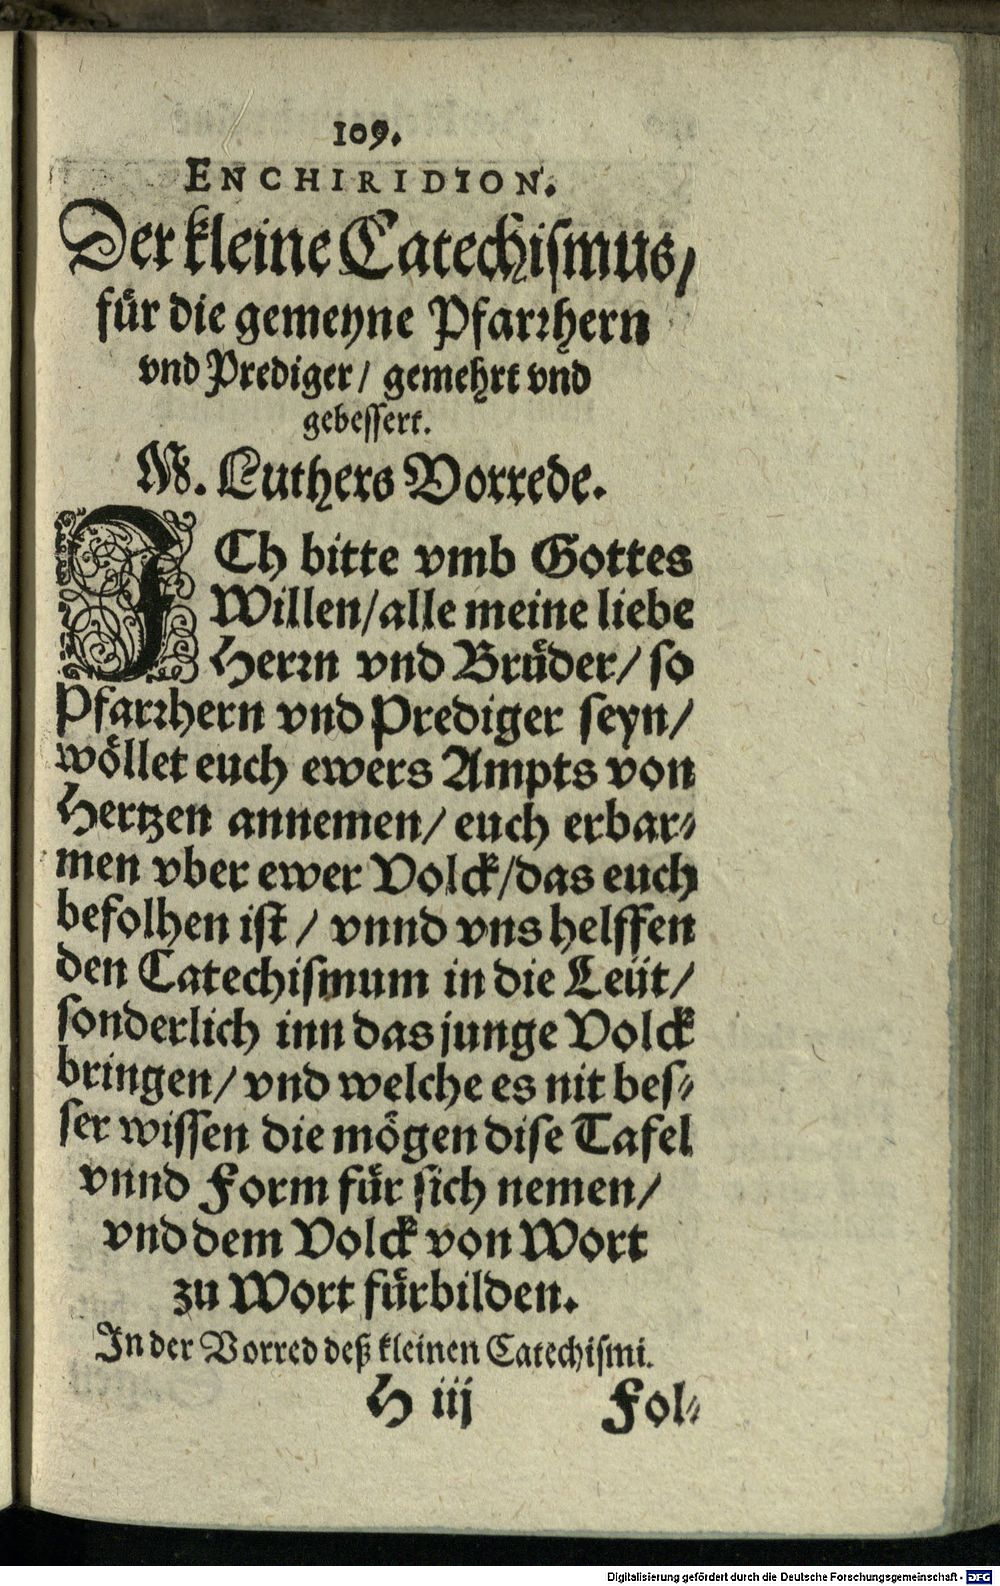 109.
ENCHIRIDION.
Der kleine Catechismus/
für die gemeyne Pfarrhern
vnd Prediger/ gemehrt vnd
gebessert.
M. Luthers Vorrede.
ICh bitte vmb Gottes
Willen/alle meine liebe
Herrn vnd Brüder/ so
Pfarrhern vnd Prediger seyn/
wöllet euch ewers Ampts von
Hertzen annemen/ euch erbar-
men vber ewer Volck/das euch
befolhen ist/ vnnd vns helffen
den Catechismum in die Leüt/
sonderlich inn das junge Volck
bringen/ vnd welche es nit bes-
ser wissen die mögen dise Tafel
vnnd Form für sich nemen/
vnd dem Volck von Wort
zu Wort fürbilden.
In der Vorred deß kleinen Catechismi.
H iij Fol-
Digitalisierung gefördert durch die Deutsche Forschungsgemeinschaft - DFG